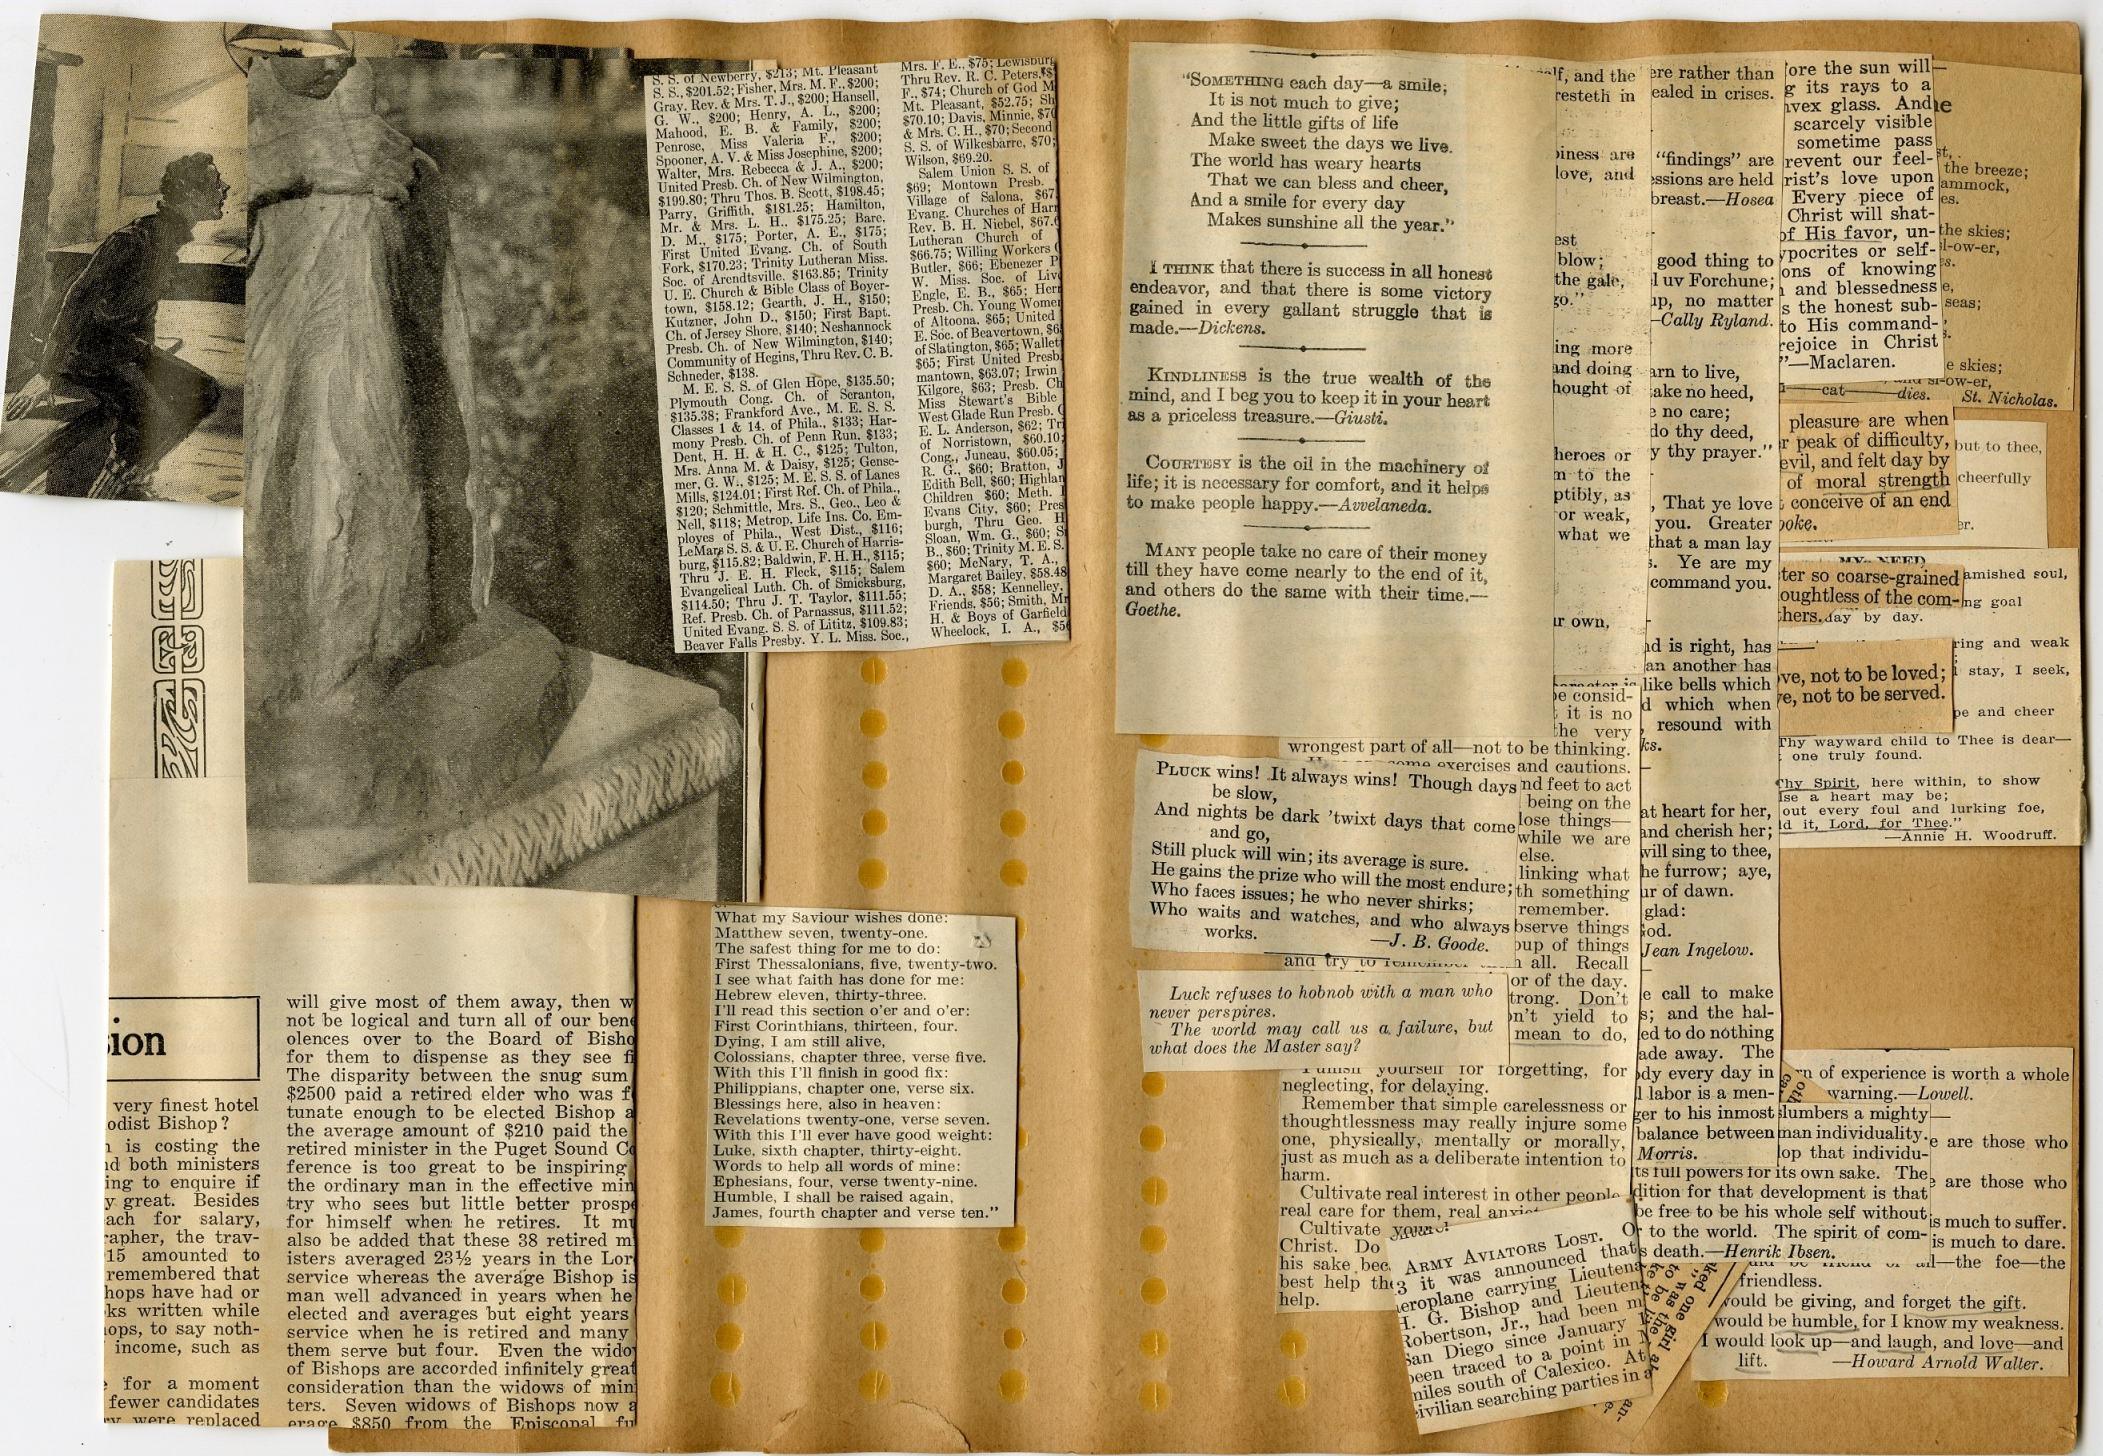 S. S. of Newberry, $213; Mt. Pleasant
S. S., $201.52; Fisher, Mrs. M. F., $200;
Gray, Rev. & Mrs. T. J., $200; Hansell,
G. W., $200; Henry, A. L., $200;
Mahood, E. B. & Family, $200;
Penrose, Miss Valeria F., $200;
Spooner, A. V. & Miss Josephine, $200;
Walter, Mrs. Rebecca & J. A., $200;
United Presb. Ch. of New Wilmington,
$199.80; Thru Thos. B. Scott, $198.45;
Parry, Griffith, $181.25; Hamilton,
Mr. & Mrs. L. H., $175.25; Bare,
D. M., $175; Porter, A. E., $175;
First United Evang. Ch. of South
Fork, $170.23; Trinity Lutheran Miss.
Soc. of Arendtsville, $163.85; Trinity
U. E. Church & Bible Class of Boyer-
town, $158.12; Gearth, J. H., $150;
Kutzner, John D., $150; First Bapt.
Ch. of Jersey Shore, $140; Neshannock
Presb. Ch. of New Wilmington, $140;
Community of Hegins, Thru Rev. C. B.
Schneder, $138.
M. E. S. S. of Glen Hope, $135.50;
Plymouth Cong. Ch. of Scranton,
$135.38; Frankford Ave., M. E. S. S.
Classes 1 & 14. of Phila., $133; Har-
mony Presb. Ch. of Penn Run. $133;
Dent, H. H. & H. C., $125; Tulton,
Mrs. Anna M. & Daisy, $125; Gense-
mer, G. W., $125; M. E. S. S. of Lanes
Mills, $124.01; First Ref. Ch. of Phila.,
$120; Schmittle, Mrs. S., Geo., Leo &
Nell, $118; Metrop. Life Ins. Co. Em-
ployes of Phila., West Dist., $116;
LeMars S. S. & U. E. Church of Harris-
burg, $115.82; Baldwin, F. H. H., $115;
Thru J. E. H. Fleck, $115; Salem
Evangelical Luth. Ch. of Smicksburg,
$114.50; Thru J. T. Taylor, $111.55;
Ref. Presb. Ch. of Parnassus, $111.52;
United Evang. S. S. of Lititz, $109.83;
Beaver Falls Presby. Y. L. Miss. Soc.,
Mrs. F. E., $75; Lewisburg
Thru Rev. R. C. Peters,
F., $74; Church of God M
Mt. Pleasant, $52.75; Sh
$70.10; Davis, Minnie,
& Mrs. C. H., $70; Second
S. S. of Wilkesbarre, $70;
Wilson, $69.20.
Salem Union S. S. of
$69; Montown Presb.
Village of Salona, $67
Evang. Churches of Har
Rev. B. H. Niebel, $67.
Lutheran Church of
$66.75; Willing Workers
Butler, $66; Ebenezer P
W. Miss. Soc. of Liv
Engle, E. B., $65; Her
Presb. Ch. Young Women
of Altoona, $65; United
E. Soc. of Beavertown,
of Slatington, $65; Wallet
$65; First United Presb
mantown, $63.07; Irwin
Kilgore, $63; Presb. Ch
Miss Stewart's Bible
West Glade Run Presb.
E. L. Anderson, $62; Tri
of Norristown, $60.10;
Cong., Juneau, $60.05;
R. G., $60; Bratton, J
Edith Bell, $60; Highlan
Children $60; Meth.
Evans City, $60; Pres
burgh, Thru Geo. H
Sloan, Wm. G., $60; S
B., $60; Trinity M. E. S.
$60; McNary, T. A.,
Margaret Bailey, $58.48
D. A., $58; Kennelley,
Friends, $56; Smith, Mr
H. & Boys of Garfield
Wheelock, I. A.,
sion
very finest hotel
odist Bishop?
is costing the
d both ministers
ing to enquire if
y great. Besides
ach for salary,
rapher, the trav-
15 amounted to
remembered that
hops have had or
ks written while
ops, to say noth-
income, such as
for a moment
fewer candidates
were replaced
will give most of them away, then w
not be logical and turn all of our bene
olences over to the Board of Bisho
for them to dispense as they see fi
The disparity between the snug sum
$2500 paid a retired elder who was f
tunate enough to be elected Bishop a
the average amount of $210 paid the
retired minister in the Puget Sound Co
ference is too great to be inspiring
the ordinary man in the effective min
try who sees but little better prospe
for himself when he retires. It mu
also be added that these 38 retired m
isters averaged 23½ years in the Lor
service whereas the average Bishop is
man well advanced in years when he
elected and averages but eight years
service when he is retired and many
them serve but four. Even the wido
of Bishops are accorded infinitely great
consideration than the widows of min
ters. Seven widows of Bishops now a
erage $850 from the Episcopal fu
What my Saviour wishes done:
Matthew seven, twenty-one.
The safest thing for me to do:
First Thessalonians, five, twenty-two.
I see what faith has done for me:
Hebrew eleven, thirty-three.
I'll read this section o'er and o'er:
First Corinthians, thirteen, four.
Dying, I am still alive,
Colossians, chapter three, verse five.
With this I'll finish in good fix:
Philippians, chapter one, verse six.
Blessings here, also in heaven:
Revelations twenty-one, verse seven.
With this I'll ever have good weight:
Luke, sixth chapter, thirty-eight.
Words to help all words of mine:
Ephesians, four, verse twenty-nine.
Humble, I shall be raised again,
James, fourth chapter and verse ten."
"SOMETHING each day—a smile;
It is not much to give;
And the little gifts of life
Make sweet the days we live.
The world has weary hearts
That we can bless and cheer,
And a smile for every day
Makes sunshine all the year."
I THINK that there is success in all honest
endeavor, and that there is some victory
gained in every gallant struggle that is
made.—Dickens.
KINDLINESS is the true wealth of the
mind, and I beg you to keep it in your heart
as a priceless treasure.—Giusti.
COURTESY is the oil in the machinery of
life; it is necessary for comfort, and it helps
to make people happy.—Avvelaneda.
MANY people take no care of their money
till they have come nearly to the end of it,
and others do the same with their time.—
Goethe.
PLUCK wins! It always wins! Though days
be slow,
And nights be dark 'twixt days that come
and go,
Still pluck will win; its average is sure.
He gains the prize who will the most endure;
Who faces issues; he who never shirks;
Who waits and watches, and who always
works. —J. B. Goode.
Luck refuses to hobnob with a man who
never perspires.
The world may call us a failure, but
what does the Master say?
elf, and the
resteth in
piness are
love, and
est
blow;
the gale,
go."
ing more
and doing
hought of
heroes or
m to the
ptibly, as
or weak,
what we
ur own,
be consid-
it is no
the very
wrongest part of all—not to be thinking.
some exercises and cautions.
nd feet to act
being on the
lose things—
while we are
else.
linking what
th something
remember.
bserve things
oup of things
and try to remember all. Recall
or of the day.
trong. Don't
n't yield to
mean to do,
Punish yourself for forgetting, for
neglecting, for delaying.
Remember that simple carelessness or
thoughtlessness may really injure some
one, physically, mentally or morally,
just as much as a deliberate intention to
harm.
Cultivate real interest in other people,
real care for them, real
Cultivate
Christ. Do
his sake bec
best help the
help.
ARMY AVIATORS LOST. O
3 it was announced that
aeroplane carrying Lieutena
H. G. Bishop and Lieuten
Robertson, Jr., had been mi
San Diego since January
been traced to a point in
miles south of Calexico. At
civilian searching parties in a
ere rather than
ealed in crises.
"findings" are
essions are held
breast.—Hosea
good thing to
l uv Forchune;
up, no matter
—Cally Ryland.
arn to live,
ake no heed,
e no care;
do thy deed,
y thy prayer."
, That ye love
you. Greater
that a man lay
s. Ye are my
command you.
nd is right, has
an another has
like bells which
d which when
resound with
ks.
at heart for her,
and cherish her;
will sing to thee,
he furrow; aye,
ur of dawn.
glad:
God.
Jean Ingelow.
e call to make
s; and the hal-
ed to do nothing
ade away. The
dy every day in
l labor is a men-
ger to his inmost
balance between
Morris.
ore the sun will
g its rays to a
nvex glass. And
scarcely visible
sometime pass
revent our feel-
rist's love upon
Every piece of
Christ will shat-
of His favor, un-
ypocrites or self-
ons of knowing
and blessedness
s the honest sub-
to His command-
rejoice in Christ
"—Maclaren.
the breeze;
ammock,
the skies;
l-ow-er,
seas;
e skies;
sl-ow-er,
cat dies. St. Nicholas.
pleasure are when
r peak of difficulty,
evil, and felt day by
of moral strength
conceive of an end
poke.
but to thee,
cheerfully
MY NEED
ter so coarse-grained
oughtless of the com-
thers.
amished soul,
ng goal
day by day.
ring and weak
stay, I seek,
ve, not to be loved;
ve, not to be served.
pe and cheer
Thy wayward child to Thee is dear—
one truly found.
Thy Spirit, here within, to show
lse a heart may be;
out every foul and lurking foe,
d it, Lord, for Thee."
—Annie H. Woodruff.
rn of experience is worth a whole
warning.—Lowell.
slumbers a mighty
man individuality.
lop that individu-
ts full powers for its own sake. The
dition for that development is that
be free to be his whole self without
r to the world. The spirit of com-
s death.—Henrik Ibsen.
e are those who
e are those who
is much to suffer.
is much to dare.
all—the foe—the
friendless.
would be giving, and forget the gift.
would be humble, for I know my weakness.
I would look up—and laugh, and love—and
lift. —Howard Arnold Walter.
ked one girl